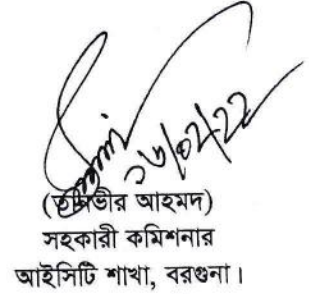 ১৬/০২/২২
(তানভীর আহমদ)
সহকারী কমিশনার
আইসিটি শাখা, বরগুনা।